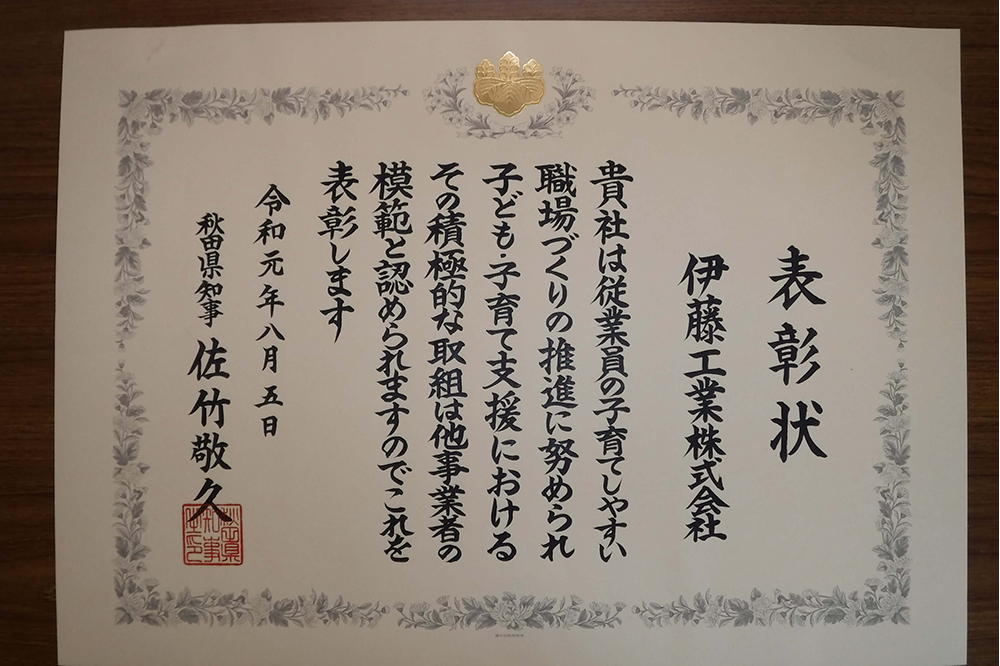 表彰状
伊藤工業株式会社
貴社は従業員の子育てしやすい
職場づくりの推進に努められ
子ども・子育て支援における
その積極的な取組は他事業者の
模範と認められますのでこれを
表彰します
令和元年八月五日
秋田県知事 佐竹敬久